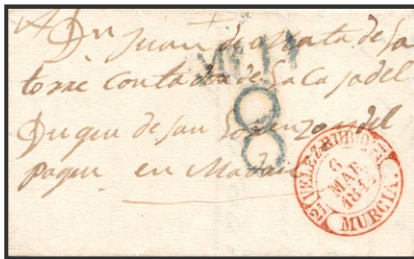 A Dn Juan de Mata de la
torre Contador de la Casa del
Duque de San Lorenzo y del
parque en Madrid
8
VELEZ-RUBIO
6
MAR
MURCIA.